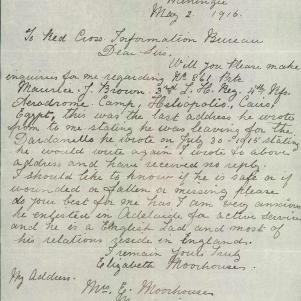 May 2. 1916.
To Red Cross Information Bureau
Dear Sirs,
Will you Please make
enquiries for me regarding No 861 Pte
Maurice J. Brown 3rd L. H. Reg. 4th Rfs.
Aerodrome Camp, Heliopolis, Cairo
Egypt, this was the last address he wrote
from to me stating he was leaving for the
Dardanelle he wrote on July 30-1915 stating
he would write again I wrote to above
address and have received no reply.
I should like to know if he is safe or if
wounded or fallen or missing please
do your best for me has I am very anxious
he enlisted in Adelaide for active Service
and he is a English Lad and most of
his relations reside in England.
I remain Yours Truly
Elizabeth Moorhouse.
My Address.
Mrs. E. Moorhouse